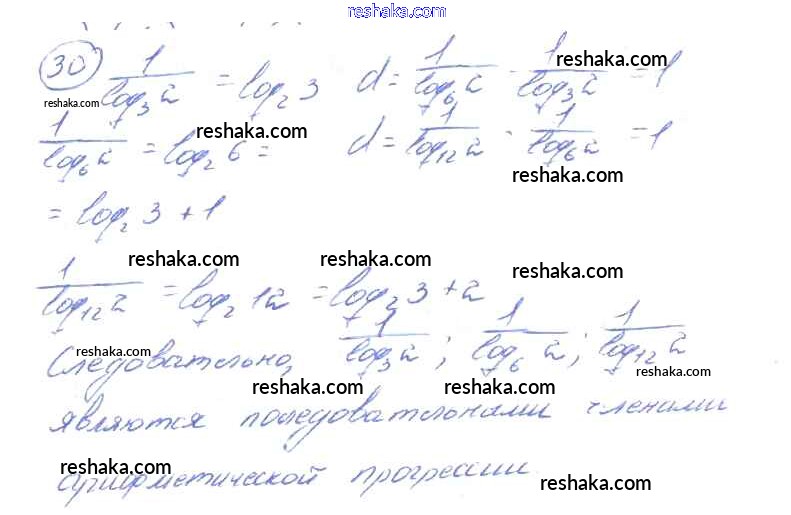 reshaka.com
30) 1/log₃2 = log₂3   d = 1/log₆2 - 1/log₃2 = 1
reshaka.com
reshaka.com
1/log₆2 = log₂6 =   d = 1/log₁₂2 - 1/log₆2 = 1
reshaka.com
reshaka.com
= log₂3 + 1
reshaka.com reshaka.com reshaka.com
1/log₁₂2 = log₂12 = log₂3 + 2
Следовательно, 1/log₃2 ; 1/log₆2 ; 1/log₁₂2
reshaka.com
reshaka.com
reshaka.com reshaka.com
являются последовательными членами
reshaka.com
арифметической прогрессии.
reshaka.com